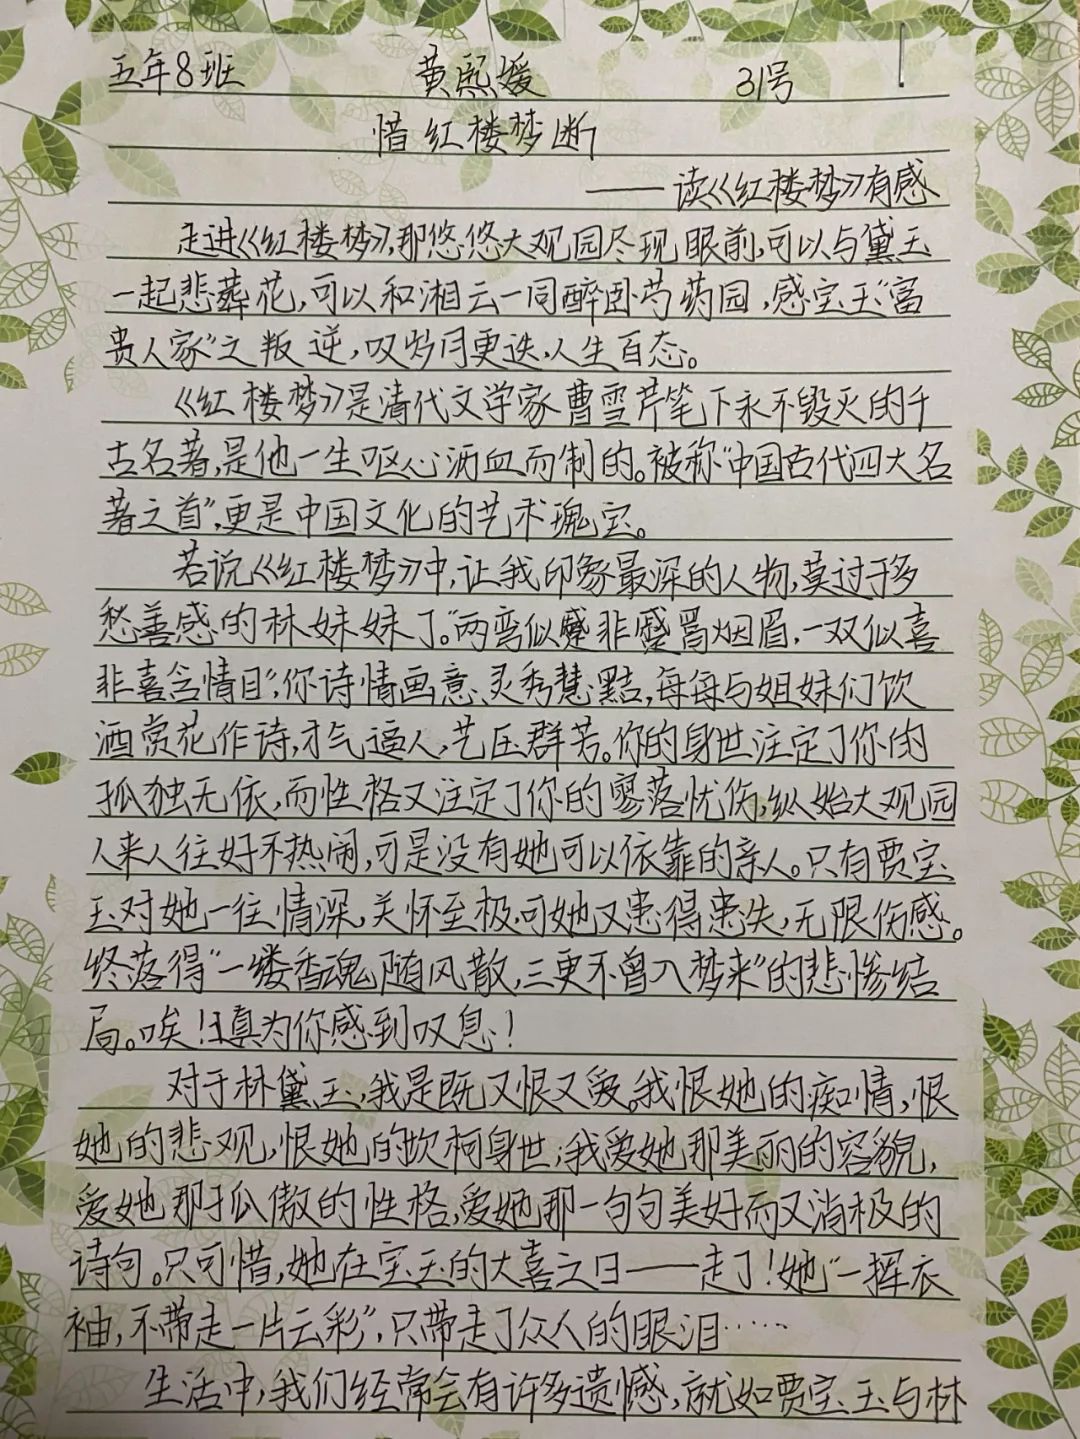 五年8班 黄熙媛 31号
惜红楼梦断
——读《红楼梦》有感
走进《红楼梦》,那悠悠大观园尽现眼前,可以与黛玉
一起悲葬花,可以和湘云一同醉卧芍药园,感宝玉“富
贵人家”之叛逆,叹岁月更迭,人生百态。
《红楼梦》是清代文学家曹雪芹笔下永不毁灭的千
古名著,是他一生呕心沥血而制的。被称“中国古代四大名
著之首”,更是中国文化的艺术瑰宝。
若说《红楼梦》中,让我印象最深的人物,莫过于多
愁善感的林妹妹了。“两弯似蹙非蹙罥烟眉,一双似喜
非喜含情目”,你诗情画意、灵秀慧黠,每每与姐妹们饮
酒赏花作诗,才气逼人,艺压群芳。你的身世注定了你的
孤独无依,而性格又注定了你的寥落忧伤,纵始大观园
人来人往好不热闹,可是没有她可以依靠的亲人。只有贾宝
玉对她一往情深,关怀至极,可她又患得患失,无限伤感。
终落得“一缕香魂随风散,三更不曾入梦来”的悲惨结
局。唉!真为你感到叹息!
对于林黛玉,我是既又恨又爱。我恨她的痴情,恨
她的悲观,恨她的坎柯身世;我爱她那美丽的容貌,
爱她那孤傲的性格,爱她那一句句美好而又消极的
诗句。只可惜,她在宝玉的大喜之日——走了!她“一挥衣
袖,不带走一片云彩”,只带走了众人的眼泪……
生活中,我们经常会有许多遗憾,就如贾宝玉与林